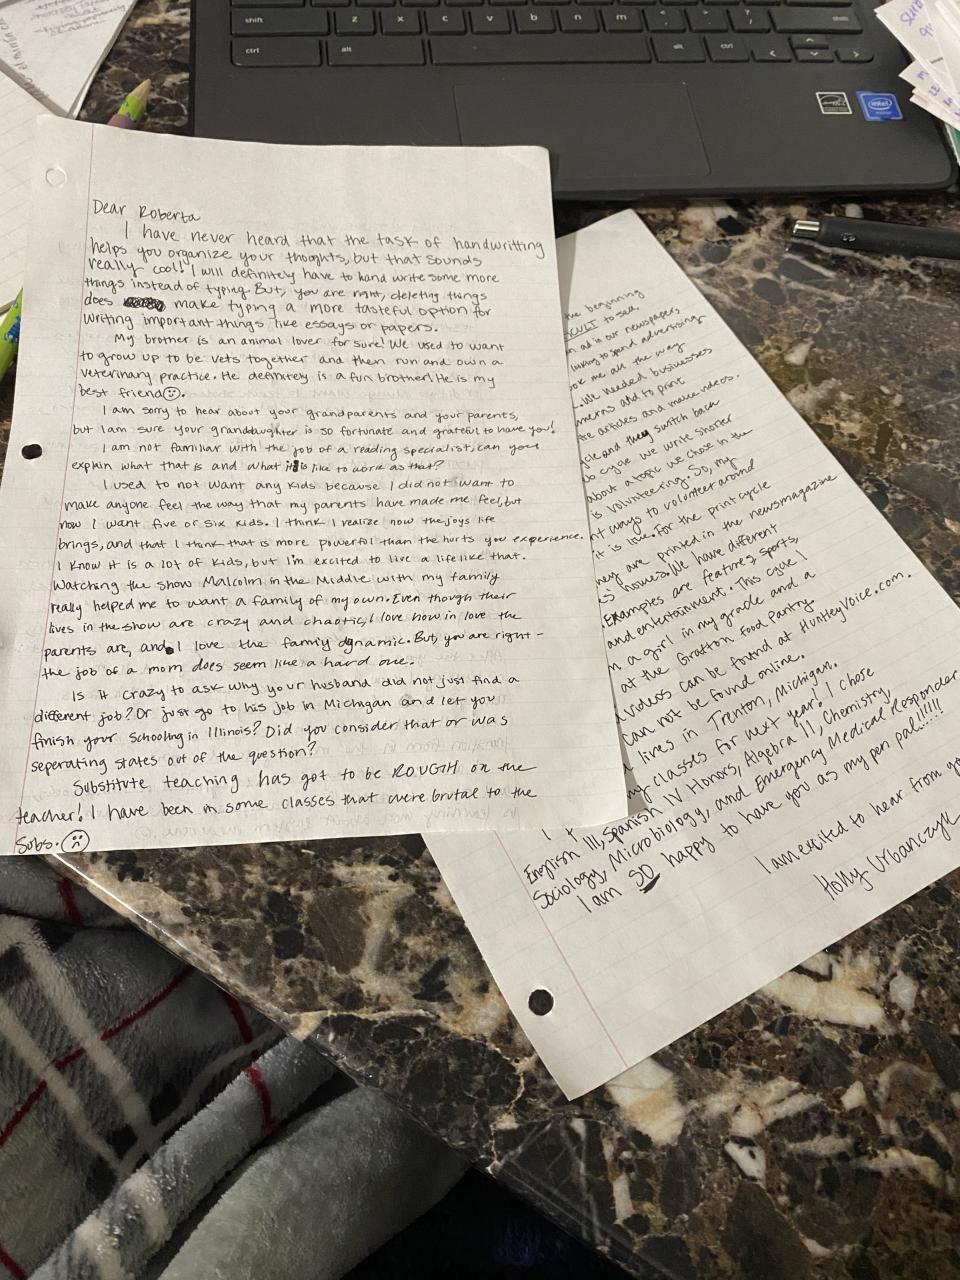 shift
z
x
c
v
b
n
m
shift
ctrl
alt
alt
ctrl
intel
Dear Roberta
I have never heard that the task of handwritting
helps you organize your thoughts, but that sounds
really cool! I will definitely have to hand write some more
things instead of typing. But, you are right, deleting things
does make typing a more tasteful option for
writing important things like essays or papers.
My brother is an animal lover for sure! We used to want
to grow up to be vets together and then run and own a
veterinary practice. He definitely is a fun brother! He is my
best friend☺.
I am sorry to hear about your grandparents and your parents,
but I am sure your granddaughter is so fortunate and grateful to have you!
I am not familiar with the job of a reading specialist, can you
explain what that is and what it is like to work as that?
I used to not want any kids because I did not want to
make anyone feel the way that my parents have made me feel, but
now I want five or six kids. I think I realize now the joys life
brings, and that I think that is more powerful than the hurts you experience.
I know it is a lot of kids, but I'm excited to live a life like that.
Watching the show Malcolm in the Middle with my family
really helped me to want a family of my own. Even though their
lives in the show are crazy and chaotic, I love how in love the
parents are, and I love the family dynamic. But, you are right -
the job of a mom does seem like a hard one.
Is it crazy to ask why your husband did not just find a
different job? Or just go to his job in Michigan and let you
finish your schooling in Illinois? Did you consider that or was
seperating states out of the question?
Substitute teaching has got to be ROUGH on the
teacher! I have been in some classes that were brutal to the
subs. ☹
the beginning
to see
ad in our newspaper,
to spend advertising
me all the way
We needed businesses
and to print
articles and make videos.
and they switch back
cycle we write shorter
about a topic we chose in the
is volunteering. So, my
ways to volunteer around
it is like. For the print cycle
they are printed in the newsmagazine
homes. We have different
Examples are features, sports,
and entertainment. This cycle I
a girl in my grade and a
at the Grafton Food Pantry.
videos can be found at HuntleyVoice.com.
can not be found online.
lives in Trenton, Michigan.
my classes for next year! I chose
English III, Spanish IV Honors, Algebra II, Chemistry,
Sociology, Microbiology, and Emergency Medical Responder
I am SO happy to have you as my pen pal!!!!!!
I am excited to hear from
Holly Urbanczyk